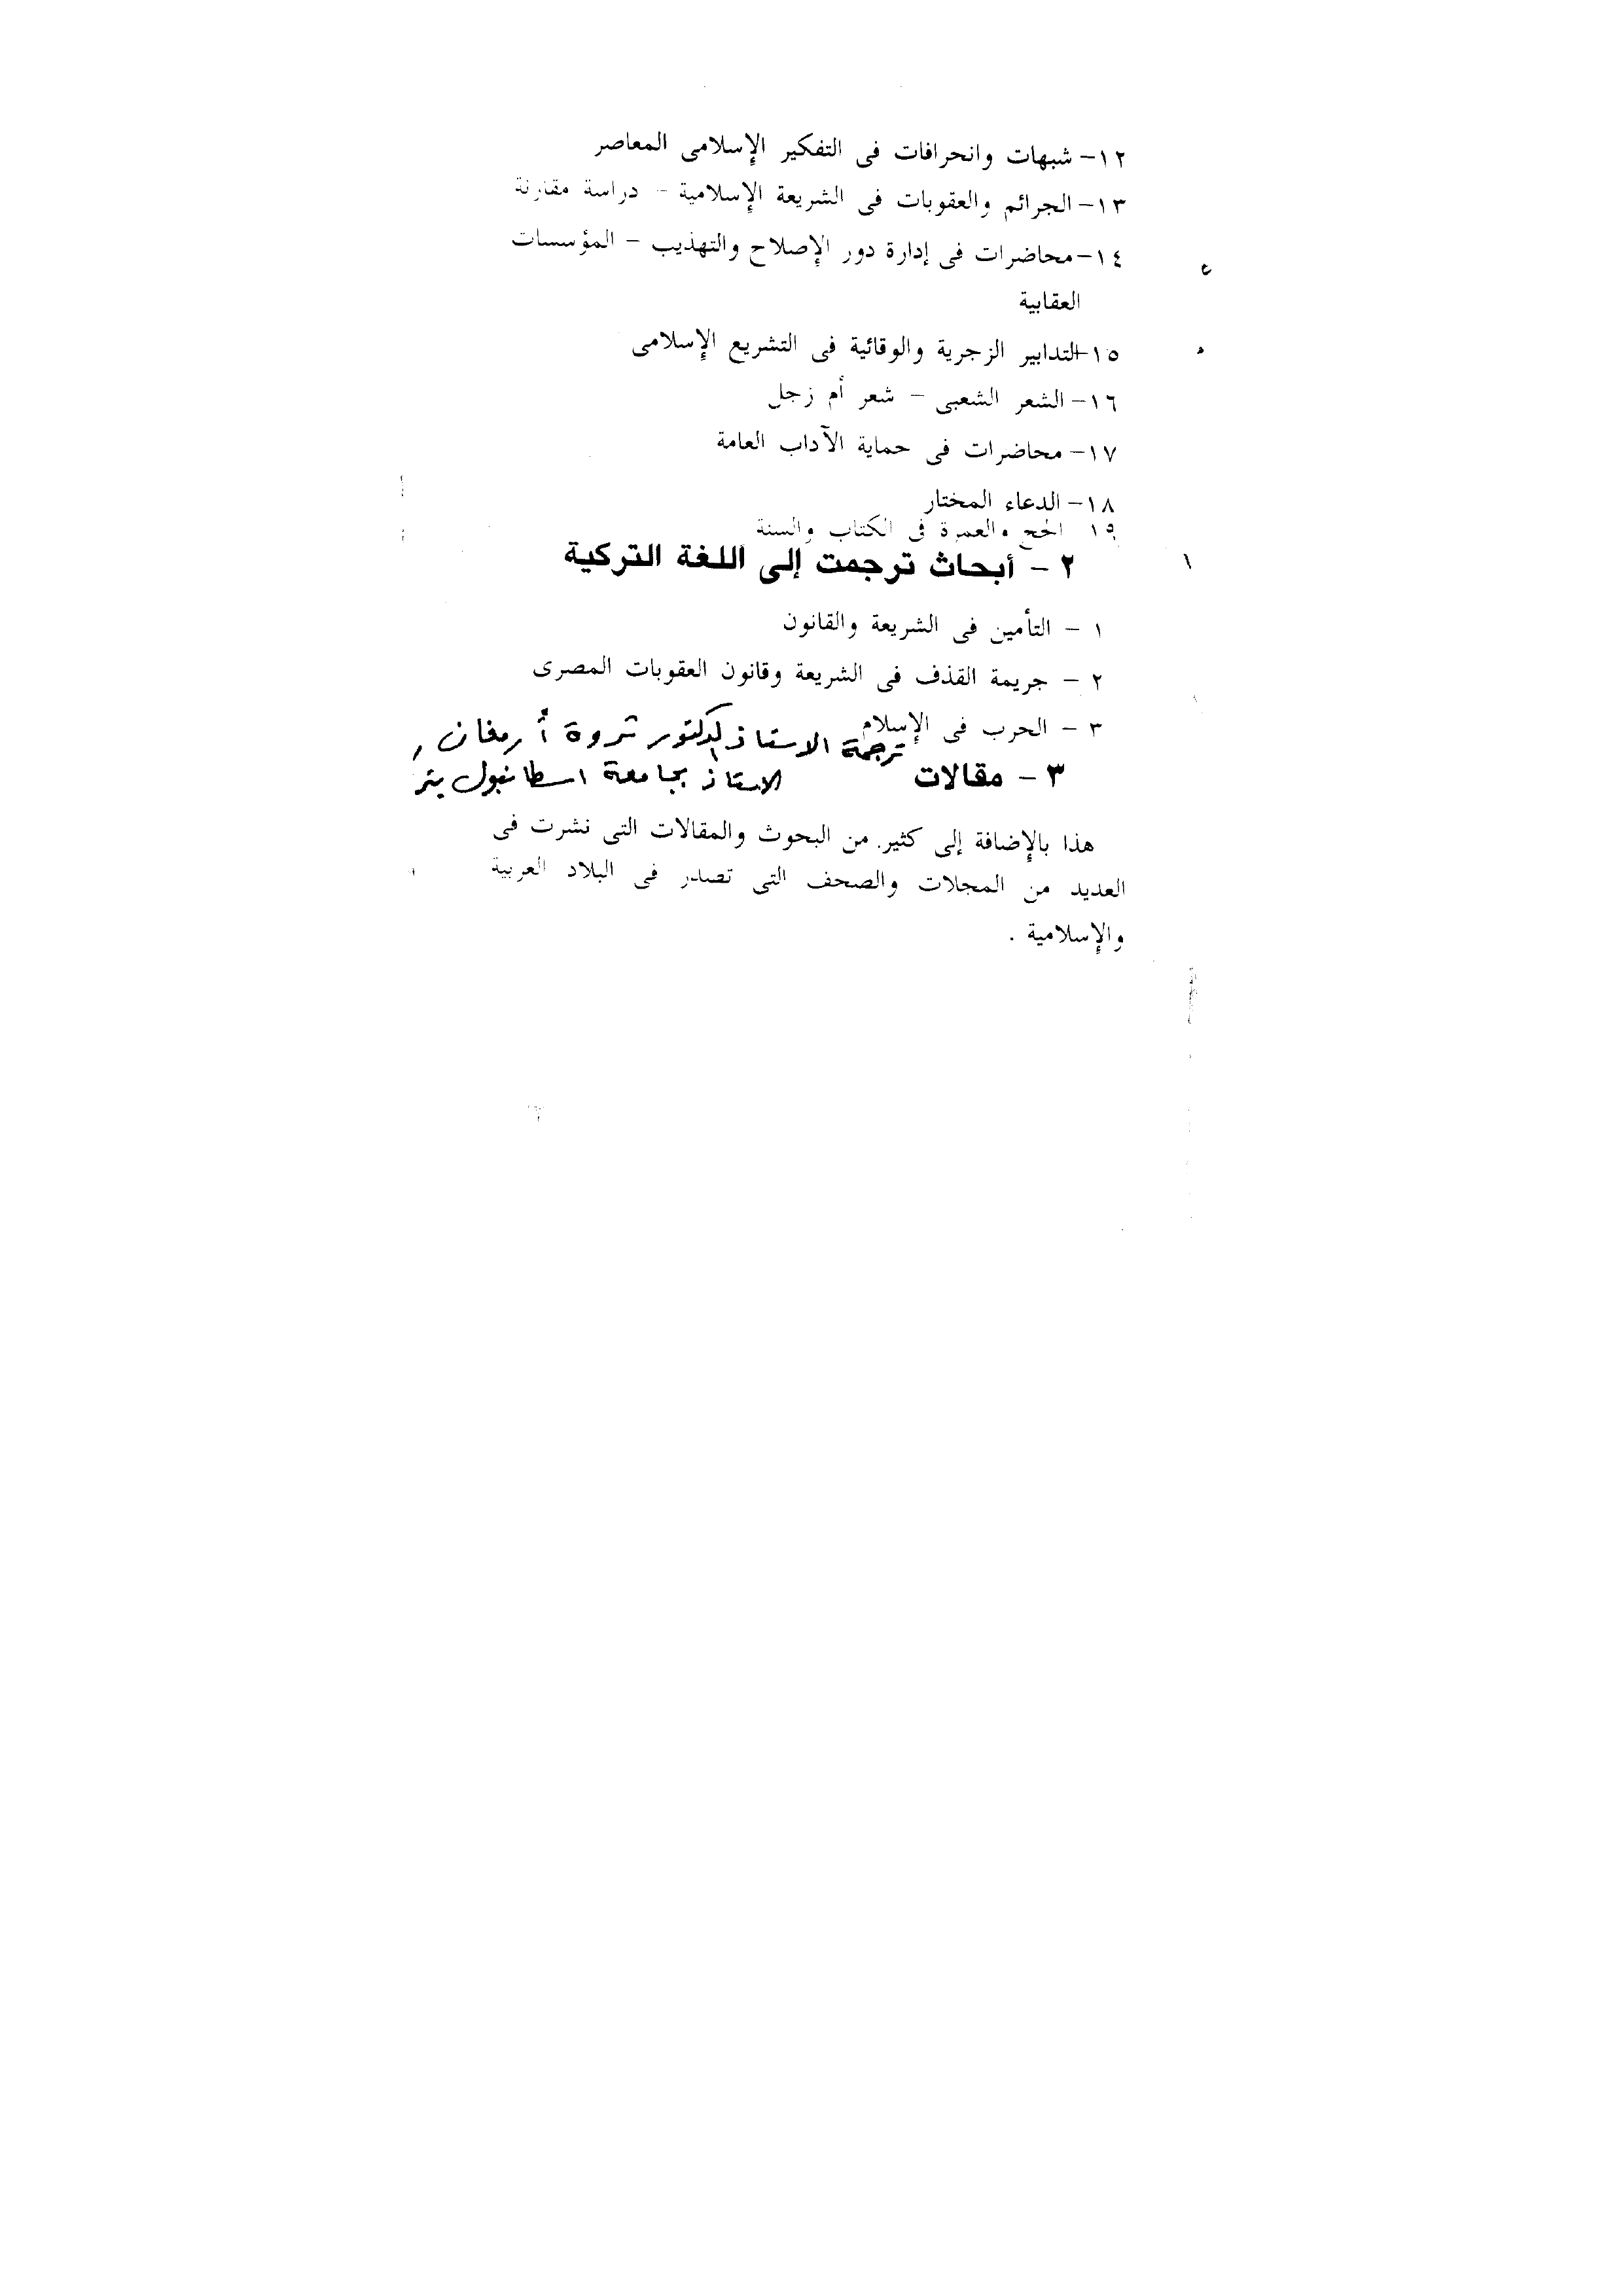 ١٢- شبهات وانحرافات فى التفكير الإسلامى المعاصر
١٣- الجرائم والعقوبات فى الشريعة الإسلامية - دراسة مقارنة
١٤- محاضرات فى إدارة دور الإصلاح والتهذيب - المؤسسات
العقابية
١٥- التدابير الزجرية والوقائية فى التشريع الإسلامى
١٦- الشعر الشعبى - شعر أم زجل
١٧- محاضرات فى حماية الآداب العامة
١٨- الدعاء المختار
١٩ الحج والعمرة فى الكتاب والسنة
٢ - أبحاث ترجمت إلى اللغة التركية
١ - التأمين فى الشريعة والقانون
٢ - جريمة القذف فى الشريعة وقانون العقوبات المصرى
٣ - الحرب فى الإسلام
ترجمة الاستاذ الدكتور ثروة أرمغان
الاستاذ بجامعة اسطانبول
٣ - مقالات
هذا بالإضافة إلى كثير من البحوث والمقالات التى نشرت فى
العديد من المجلات والصحف التى تصدر فى البلاد العربية
والإسلامية .